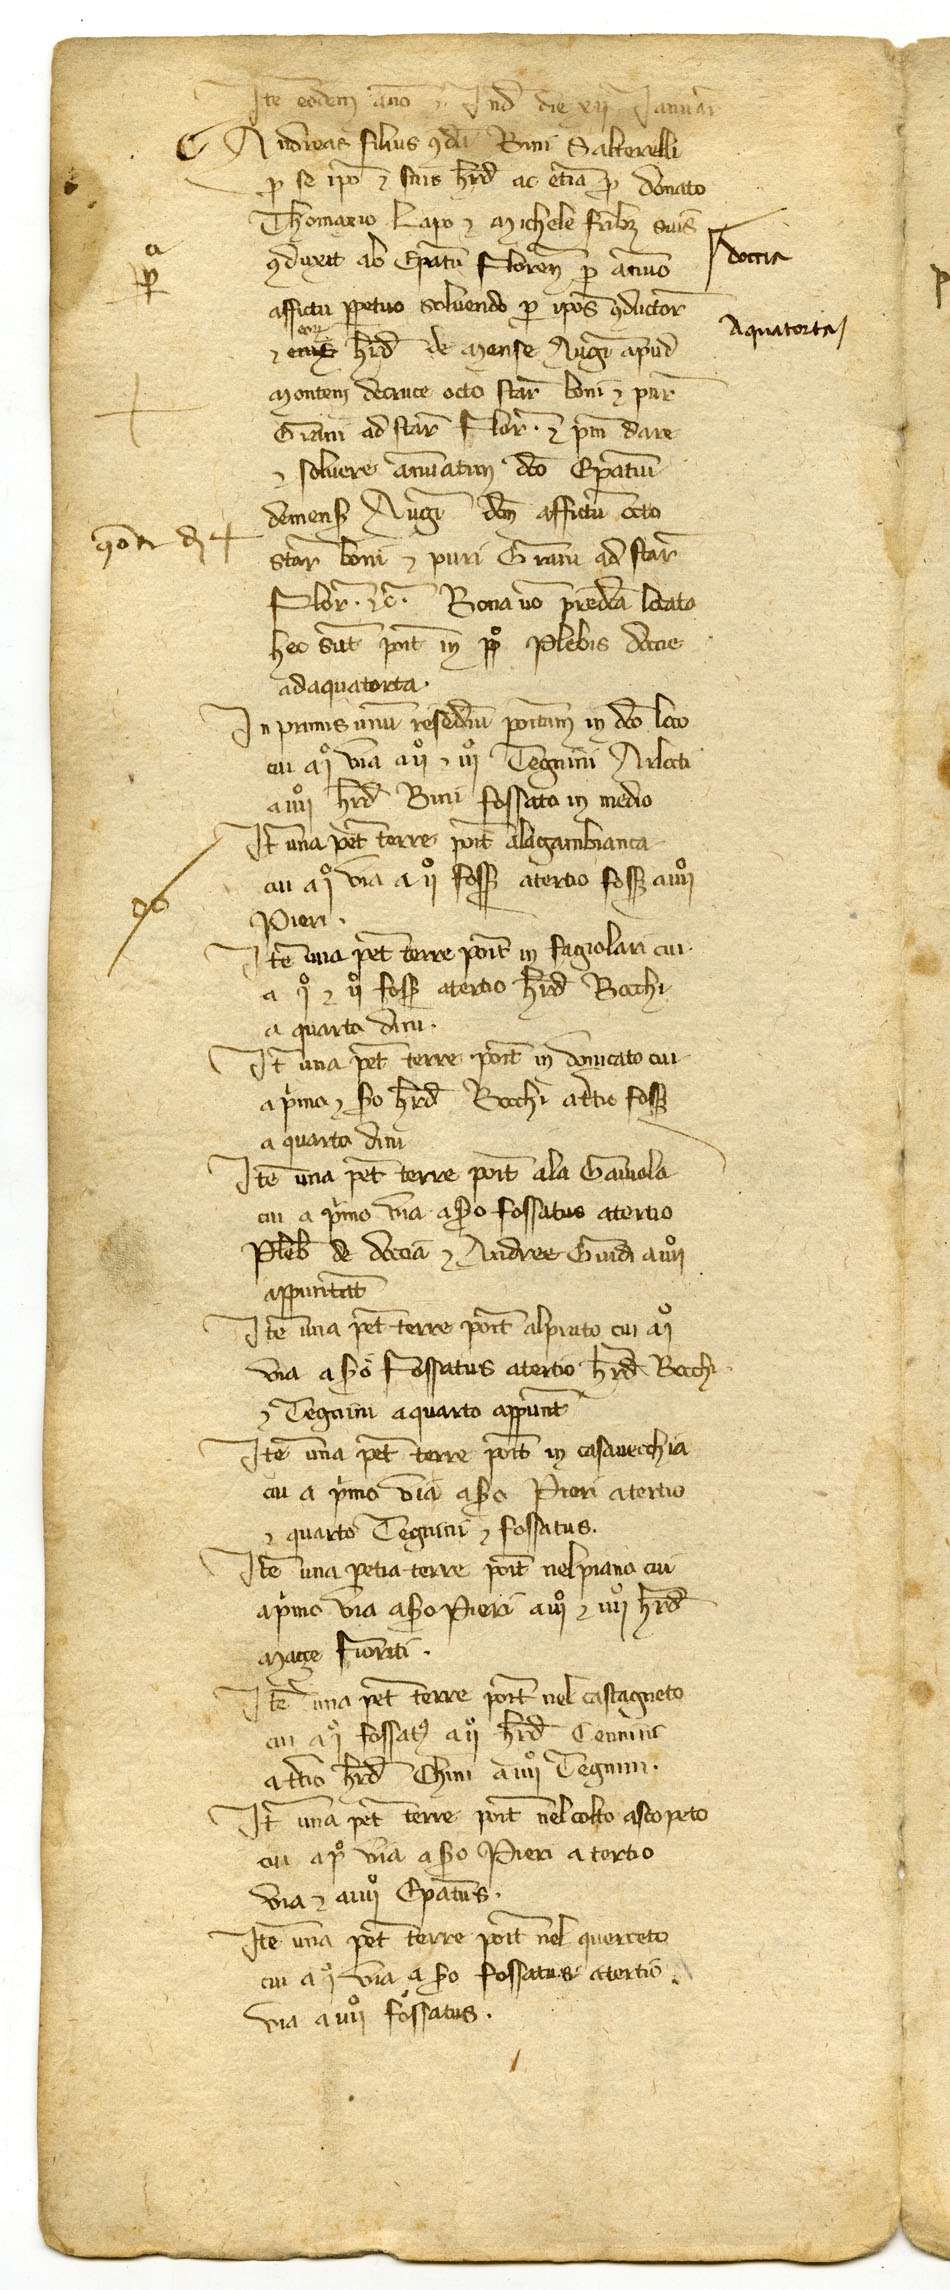 Itē eodem año ⁊ Ind̄ die xij Januar̄
Andreas filius ꝯdā Bini Salterelli
ꝑ se ip̄o ⁊ suis hrd̄ ac etiā ꝑ donato
Thomaxio Lapo ⁊ Michele fr̄ibꝫ suis
ꝯduxit ab Ep̄atu Floren̄ ꝑ ānuo
doccia
affictu ꝑpetuo soluendo ꝑ ip̄os ꝯductor̄
Aquatorta
⁊ eoꝝ hrd̄ de mense Auḡ apud
montem decruce octo star̄ boni ⁊ pur̄
Grani ad star̄ Flor̄. ⁊ ꝓm̄ dare
⁊ soluere annuatim dc̄o Ep̄atui
demens̄ Auḡ dc̄m affictū octo
star̄ boni ⁊ puri Grani ad star̄
Flor̄. ⁊c̄. Bona ū̄o predc̄a locata
hec sūt poīt in ppº Plebis doccie
adaquatorta.
In primis unū resediū poītum in dc̄o loco
cui a jº via a ijº ⁊ iijº Tegnini Arlocti
a iiijº hrd̄ Bini fossato in medio
Itē una pet̄ terre poīt alagambianca
cui a jº via a ijº foss̄ atertio foss̄ a iiijº
Pieri.
Itē una pet̄ terre poīt in fagiolari cui
a jº ⁊ ijº foss̄ atertio hrd̄ Bocchi
a quarto dini.
Itē una pet̄ terre poīt in donicato cui
a pͥmo ⁊ so hrd̄ Bocchi at̄tio foss̄
a quarto dini
Itē una pet̄ terre poīt ala
cui a pͥmo via aso fossatus atertio
Pleb̄ de doccia ⁊ Andree Guidi a iiijº
appunītat̄
Itē una pet̄ terre poīt alprato cui a jº
via aso Fossatus atertio hrd̄ Bocchi
⁊ Tegnini aquarto appunīt
Itē una pet̄ terre poīt in casauecchia
cui a pͥmo via aso Pieri atertio
⁊ quarto Tegnini ⁊ fossatus.
Itē una petia terre poīt nelpiano cui
apͥmo via aso Pieri a iijº ⁊ iiijº hrd̄
Fioriti.
Itē una pet̄ terre poīt nel castagneto
cui a jº fossatꝰ a ijº hrd̄ Cennini
at̄tio hrd̄ Chini a iiijº Tegnini.
Itē una pet̄ terre poīt nelcolto ascopeto
cui apº via aso Pieri atertio
via ⁊ a iiijº Ep̄atus.
Itē una pet̄ terre poīt nel querceto
cui a jº via aso fossatus atertio
via a iiijº fossatus.